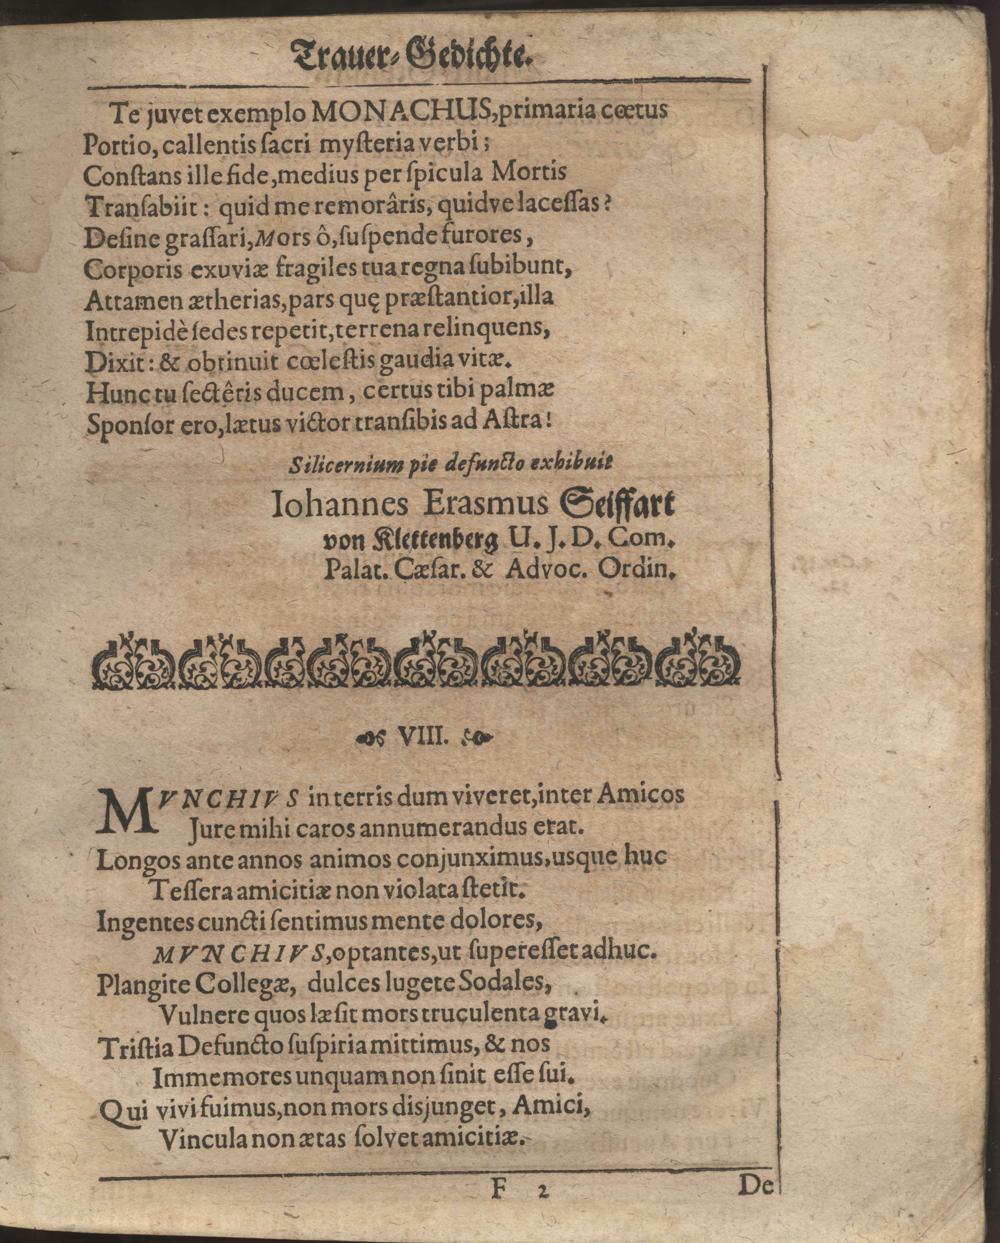 Trauer-Gedichte.
Te juvet exemplo MONACHUS, primaria cœtus
Portio, callentis ſacri myſteria verbi;
Conſtans ille fide, medius per ſpicula Mortis
Tranſabiit: quid me remorâris, quidve laceſſas?
Deſine graſſari, Mors ô, ſuſpende furores,
Corporis exuviæ fragiles tua regna ſubibunt,
Attamen ætherias, pars quę præſtantior, illa
Intrepidè ſedes repetit, terrena relinquens,
Dixit: & obtinuit cœleſtis gaudia vitæ.
Hunc tu ſectêris ducem, certus tibi palmæ
Sponſor ero, lætus victor tranſibis ad Aſtra!
Silicernium pie defuncto exhibuit
Iohannes Erasmus Seiffart
von Klettenberg U. J. D. Com.
Palat. Cæſar. & Advoc. Ordin.
VIII.
MVNCHIVS in terris dum viveret, inter Amicos
Jure mihi caros annumerandus erat.
Longos ante annos animos conjunximus, usque huc
Teſſera amicitiæ non violata ſtetit.
Ingentes cuncti ſentimus mente dolores,
MVNCHIVS, optantes, ut ſupereſſet adhuc.
Plangite Collegæ, dulces lugete Sodales,
Vulnere quos læſit mors truculenta gravi.
Triſtia Defuncto ſuſpiria mittimus, & nos
Immemores unquam non ſinit eſſe ſui.
Qui vivi fuimus, non mors disjunget, Amici,
Vincula non ætas ſolvet amicitiæ.
F 2
De